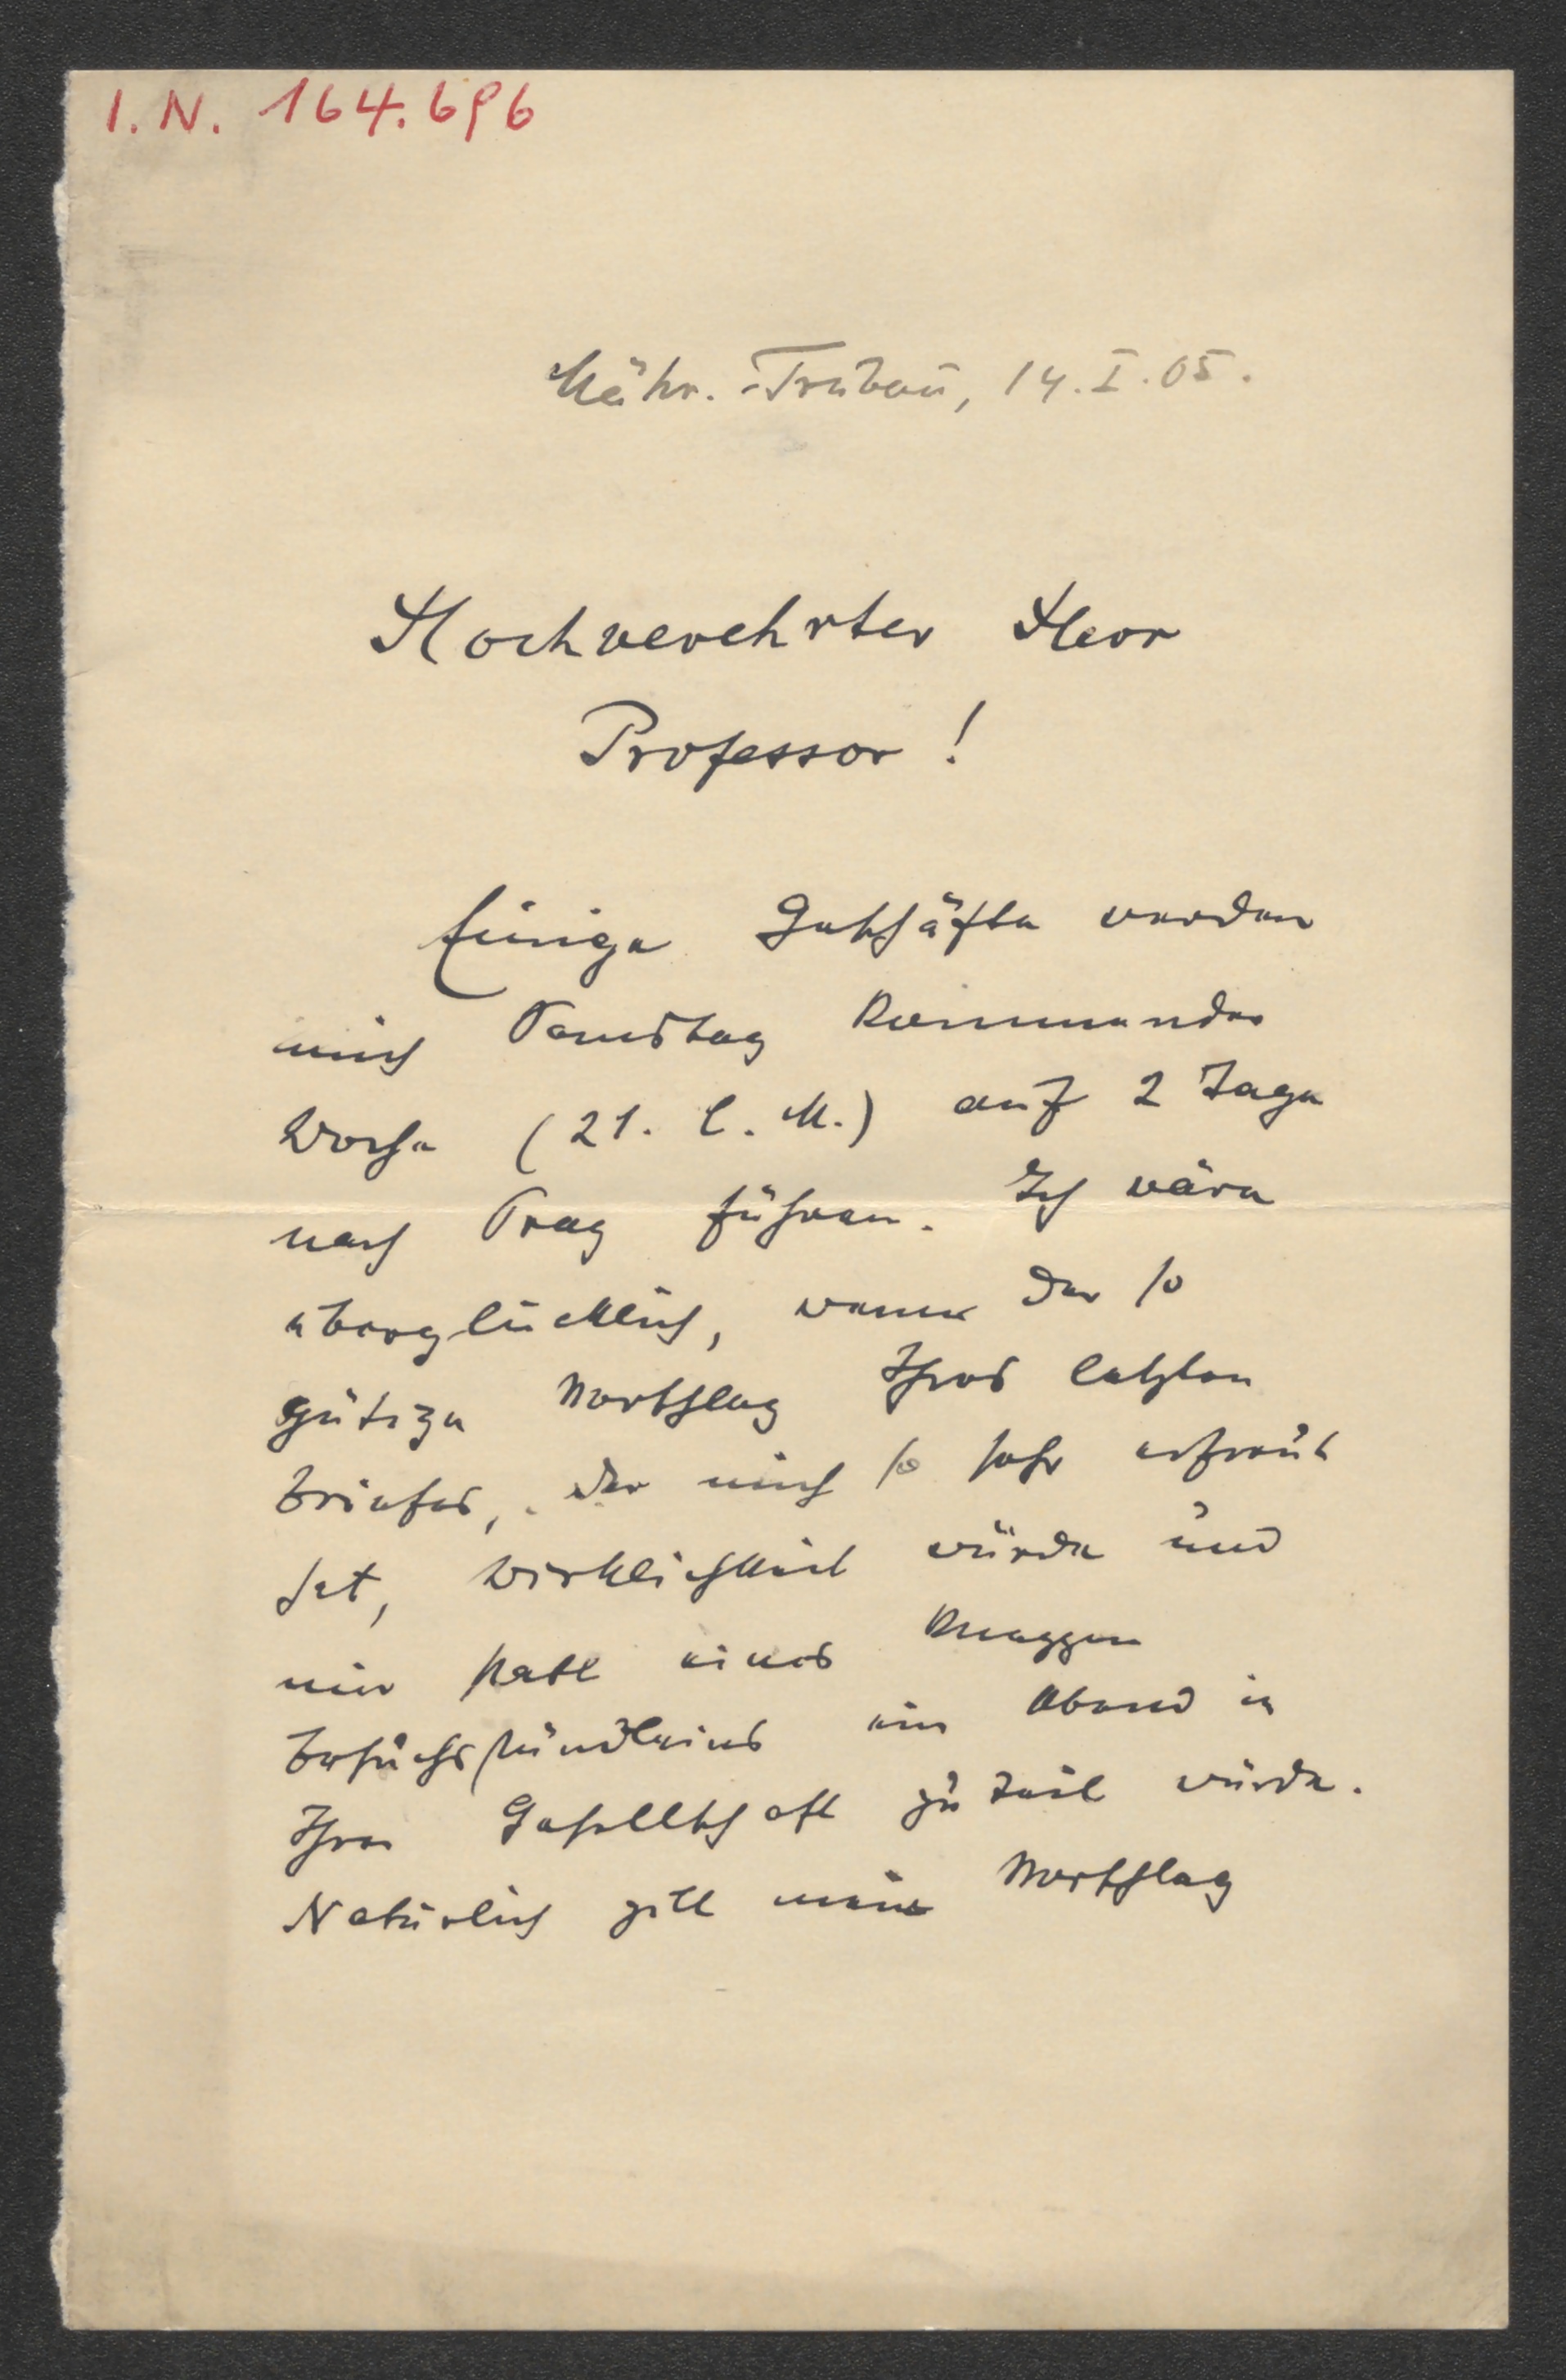 I. N. 164.696
Mähr.-Trübau, 14. I. 05.
Hochverehrter Herr
Professor!
Einige Geschäfte werden
mich Samstag kommender
Woche (21. l. M.) auf 2 Tage
nach Prag führen. Ich wäre
überglücklich, wenn der so
gütige Vorschlag Ihres letzten
Briefes, der mich so sehr erfreut
hat, Wirklichkeit würde und
mir statt eines knappen
Besuchsstündleins ein Abend in
Ihrer Gesellschaft zu teil würde.
Natürlich gilt mein Vorschlag